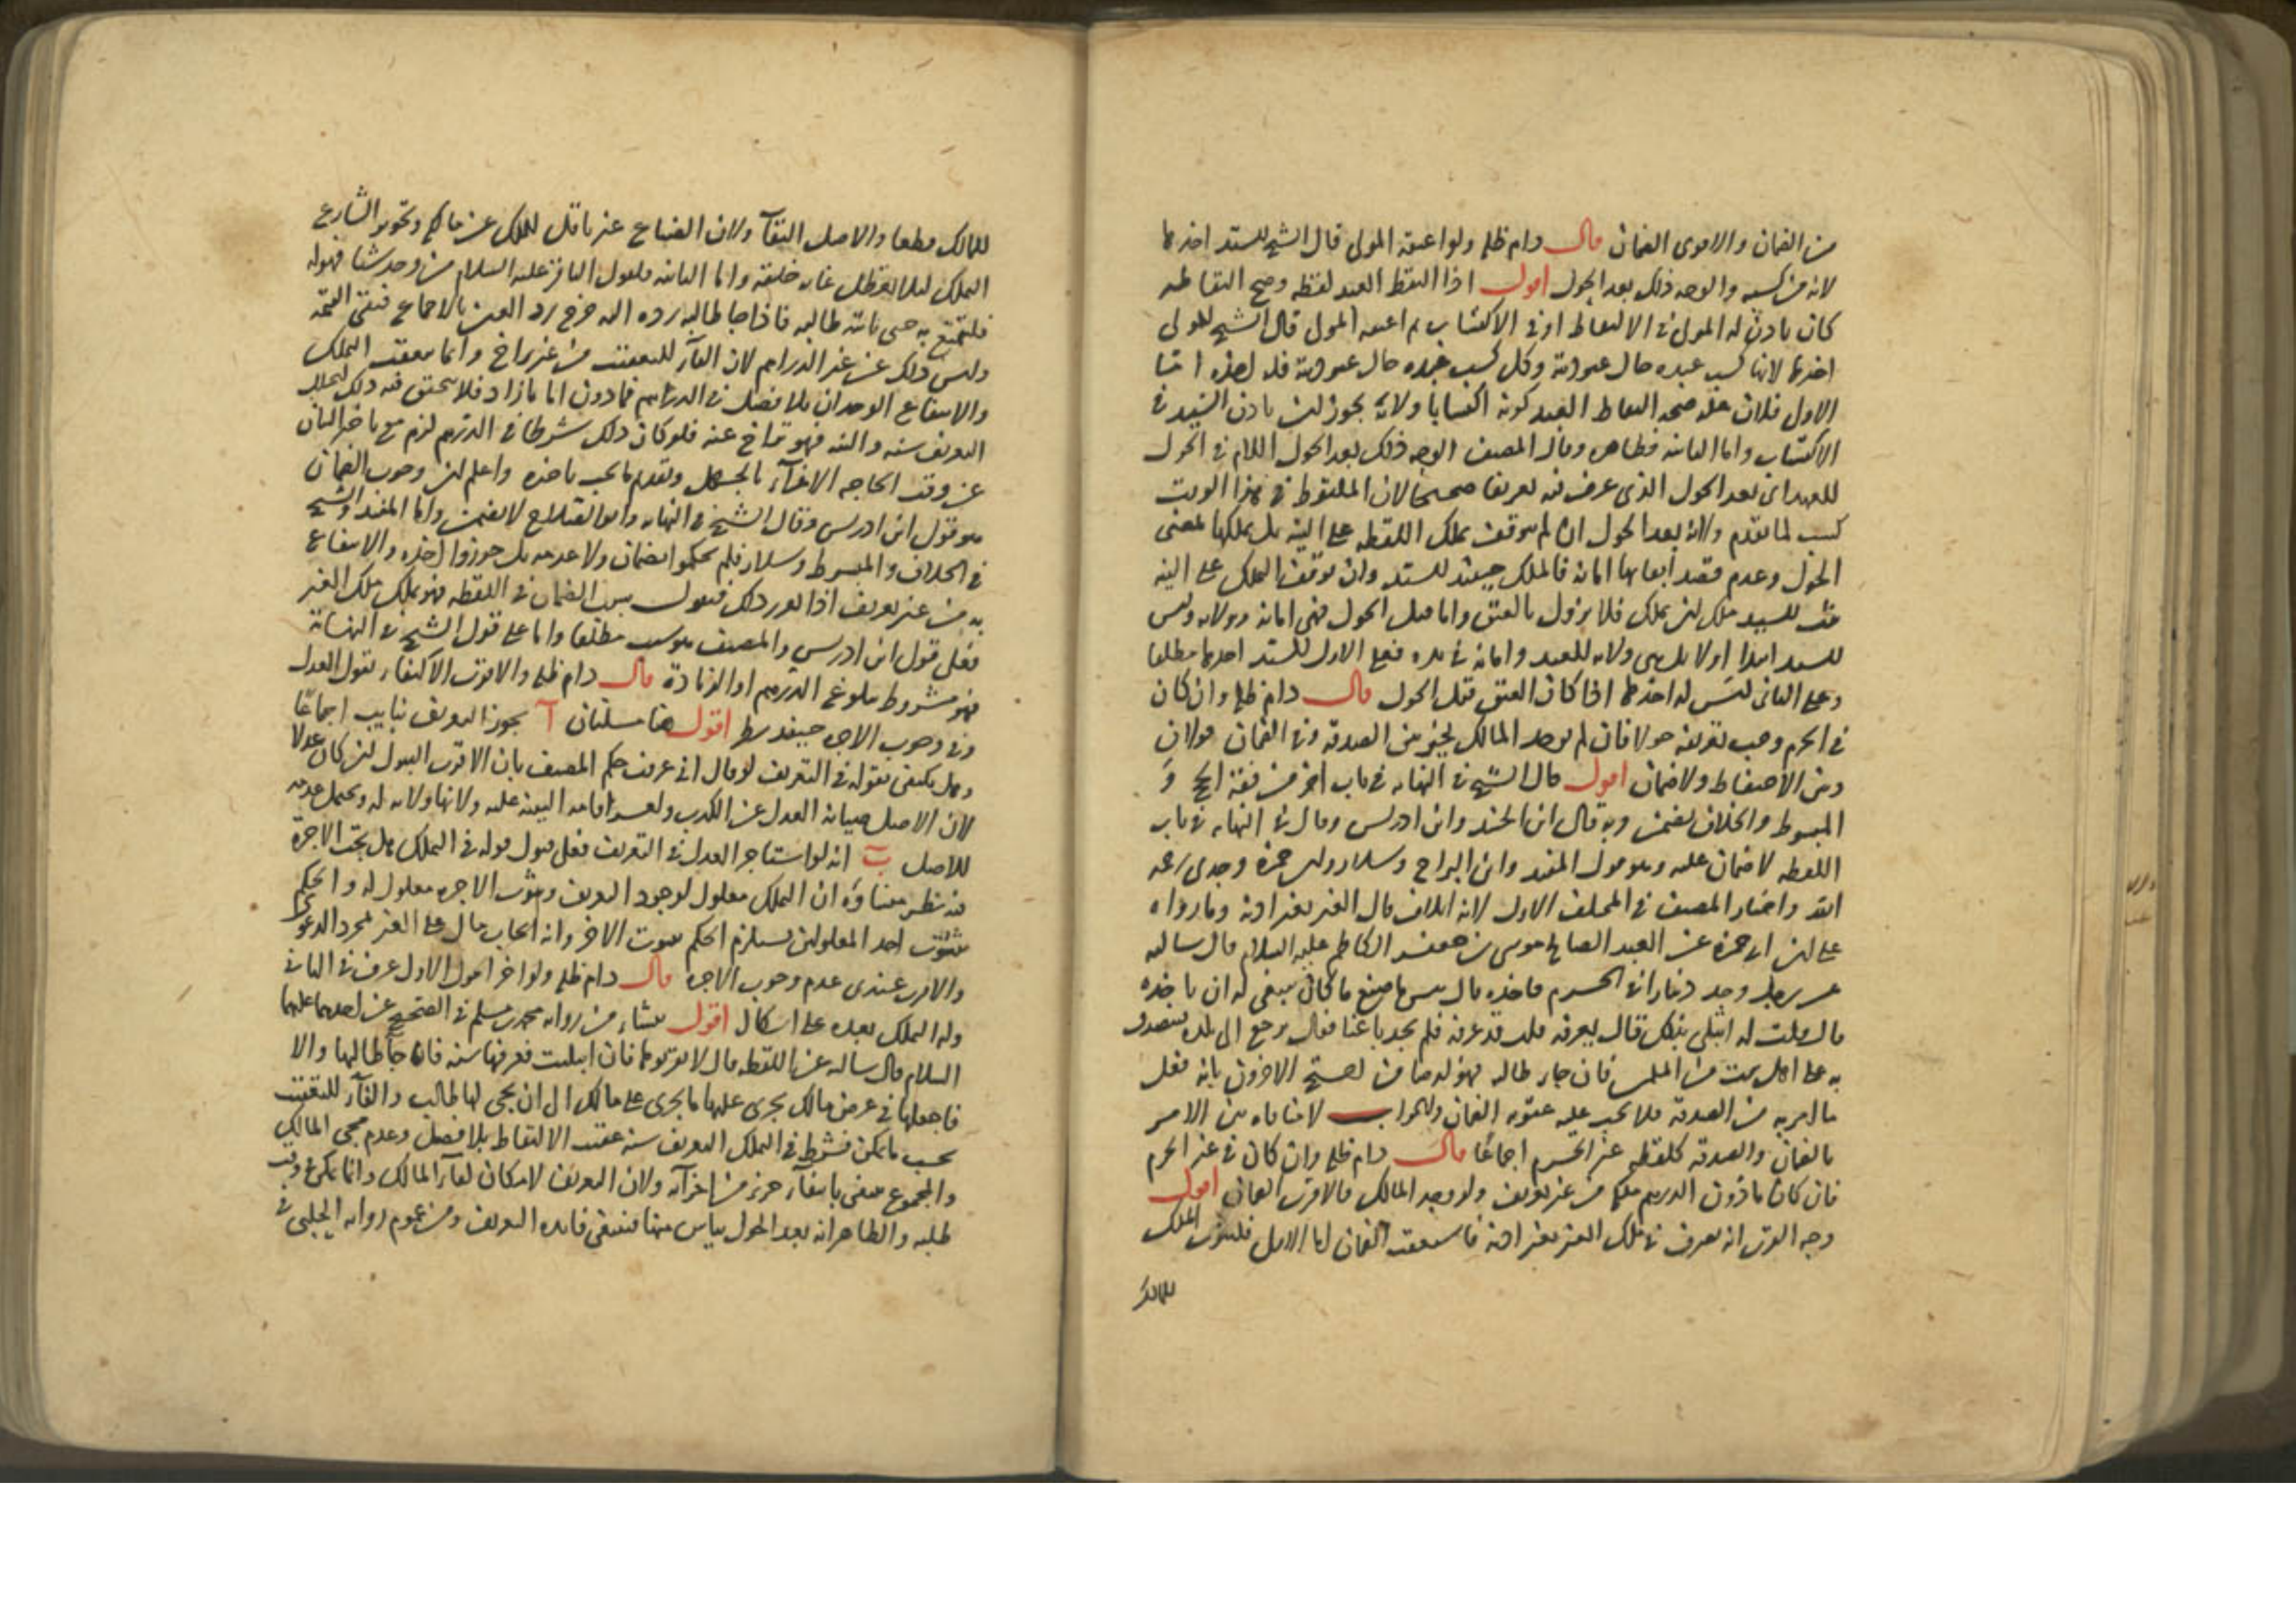 من الضمان والاقوى الضمان قال دام ظله ولو اعتقه المولى قال الشيخ للسيد اخذها
لانه من كسبه والوجه ذلك بعد الحول اقول اذا التقط العبد لقطه وصح التقاطه
كان باذن له المولى في الالتقاط او في الاكتساب ثم اعتقه المولى قال الشيخ للمولى
اخذها لانها كسب عبده حال عبوديته وكل كسب عبده حال عبوديته فله اخذه اما
الاولى فلان علة صحة التقاط العبد كونه اكتسابا ولانه يجوز باذن السيد في
الاكتساب واما الثانيه فظاهره وقال المصنف الوجه ذلك بعد الحول اللام في الحول
للعهد اي بعد الحول الذي عرف فيه تعريفا صحيحا لان الملقوط في هذا الوقت
كسب لما تقدم ولانه بعد الحول ان لم يتوقف تملك اللقطه على النيه بل يملكها بمضي
الحول وعدم قصد ابقائها امانه فالملك حينئذ للسيد وان توقف التملك على النيه
للسيد ملك ان يملك فلا يزول بالعتق واما قبل الحول فهي امانه وولايه وليس
للسيد ابتدا اولا بل هي ولايه للعبد وامانه في يده فعلى الاول للسيد اخذها مطلقا
وعلى الثاني ليس له اخذها اذا كان العتق قبل الحول قال دام ظله وان كان
في الحرم وجب تعريفه حولا فان لم يوجد المالك تخير بين الصدقه وفي الضمان قولان
وبين الاحتفاظ ولا ضمان اقول قال الشيخ في النهايه في باب اخر من فقه الحج و
المبسوط والخلاف يضمن وبه قال ابن الجنيد وابن ادريس وقال في النهايه في باب
اللقطه لا ضمان عليه وهو قول المفيد وابن البراج وسلار وابن حمزة وجدي رحمه
الله واختيار المصنف في المختلف الاول لانه اتلاف مال الغير بغير اذنه وما رواه
على بن ابي حمزة عن العبد الصالح موسى بن جعفر الكاظم عليه السلام قال سالته
عن رجل وجد دينارا في الحرم فاخذه قال بئس ما صنع ما كان ينبغي له ان ياخذه
قال قلت له ابتلى بذلك قال يعرفه قلت قد عرفه فلم يجد باغيا فقال يرجع الى بلده فيتصدق
به على اهل بيت من المسلمين فان جاء طالبه فهو له ضامن احتج الاخرون بانه فعل
ما امر به من الصدقه فلا يجب عليه عقوبه الضمان والجواب لا منافاه بين الامر
بالضمان والصدقه كلقطه غير الحرم اجماعا قال دام ظله وان كان في غير الحرم
فان كان ما دون الدرهم ملكه من غير تعريف ولو وجد المالك فالاقرب الضمان اقول
وجه القرب انه تصرف في ملك الغير بغير اذنه فاستعقب الضمان اما الاول فلثبوت الملك
للمالك
للمالك قطعا والاصل البقآ ولان الضياع غير ناقل للملك عن مالكه وتجويز الشارع
التملك لئلا يتعطل غايه خلقه واما الثانيه فلقول الباقر عليه السلام من وجد شيئا فهو له
فليتمتع به حتى ياتيه طالبه فاذا جا طالبه رده اليه خرج رد العين بالاجماع فتبقى القيمة
وليس ذلك عن غير الدراهم لان الفآء للتعقيب من غير تراخ وانما يعقب التملك
والانتفاع الوجدان بلا فصل في الدرهم فما دون اما ما زاد فلا يتحقق فيه ذلك لتخلل
التعريف سنه والنيه فهو تراخ عنه فلو كان ذلك شرطا في الدرهم لزم تاخير البيان
عن وقت الحاجه الاغرآء بالجهل وتقديم ما يجب تاخيره واعلم ان وجوب الضمان
هو قول ابن ادريس وقال الشيخ في النهايه وابو الصلاح لا يضمن واما المفيد والشيخ
في الخلاف والمبسوط وسلار فلم يحكموا بضمان ولا عدمه بل جوزوا اخذه والانتفاع
به من غير تعريف اذا تقرر ذلك فنقول سبب الضمان في اللقطه فهو تملك ملك الغير
فعلى قول ابن ادريس والمصنف هو سبب مطلقا واما على قول الشيخ في النهاية
فهو مشروط ببلوغ الدرهم او الزيادة قال دام ظله والاقرب الاكتفاء بقول العدل
وفي وجوب الاجره حينئذ نظر اقول هنا مسئلتان آ يجوز التعريف بنايب اجماعا
وهل يكتفى بقوله في التعريف لو قال اني عرفت حكم المصنف بان الاقرب القبول ان كان عدلا
لان الاصل صيانه العدل عن الكذب ولعسر اقامه البينه عليه ولانها ولايه له ويحتمل عدمه
للاصل ب انه لو استاجر العدل في التعريف فعلى قبول قوله في التملك هل يستحق الاجرة
فيه نظر منشاؤه ان التملك معلول لوجود التعريف وثبوت الاجره معلول له والحكم
بثبوت احد المعلولين يستلزم الحكم بثبوت الاخر وانه ايجاب مال على الغير لمجرد الدعوى
والاقرب عندي عدم وجوب الاجره قال دام ظله ولو اخر الحول الاول عرف في الثاني
وله التملك بعده على اشكال اقول ينشاء من روايه محمد بن مسلم في الصحيح عن احدهما عليهما
السلام قال سالته عن اللقطه قال لا ترفعوها فان ابتليت فعرفها سنه فان جآ طالبها والا
فاجعلها في عرض مالك يجري عليها ما يجري على مالك الى ان يجي لها طالب والفآء للتعقيب
بحسب ما يمكن فشرط في التملك التعريف سنه عقيب الالتقاط بلا فصل وعدم مجي المالك
والمجموع ينتفي بانتفآء جزء من اجزآئه ولان التعريف لامكان لقآء المالك وانما يمكن في وقت
طلبه والظاهر انه بعد الحول يياس منها فينتفي فايده التعريف ومن عموم روايه الحلبي في